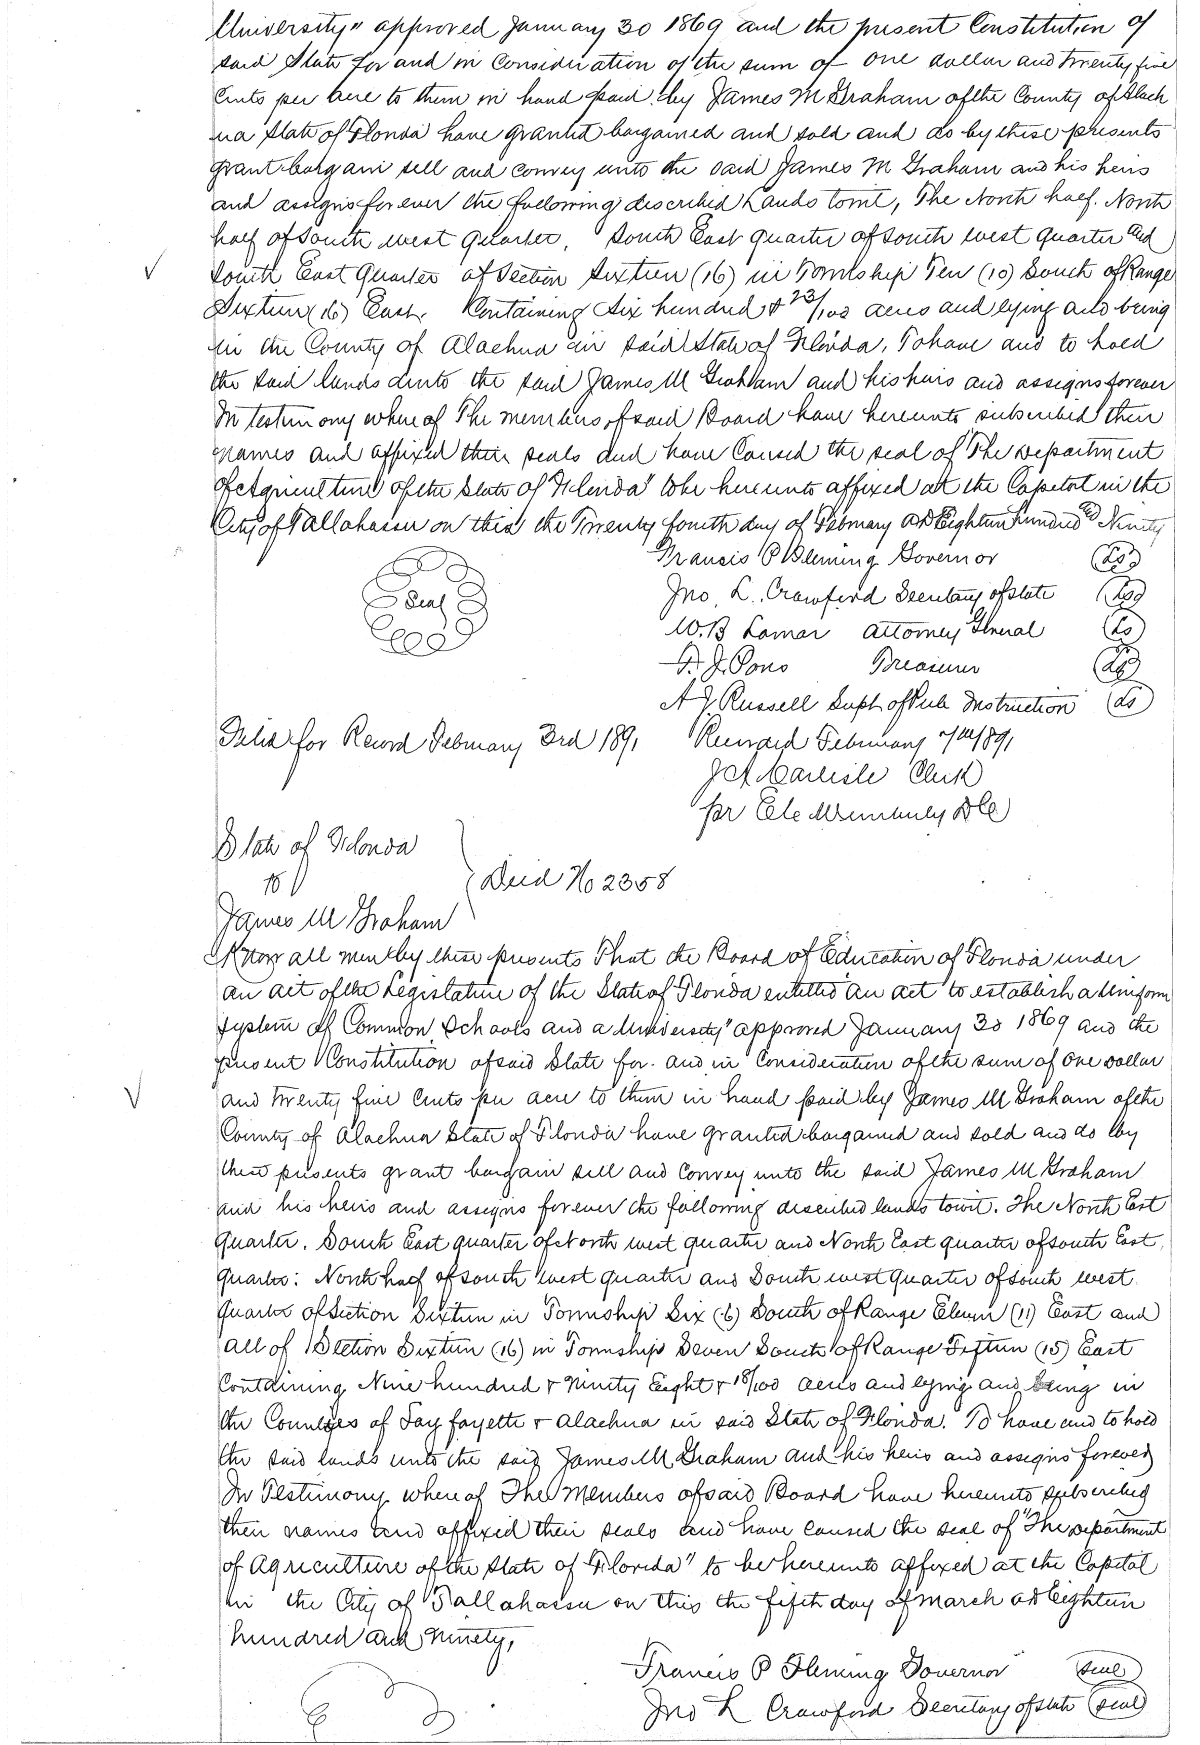 University" approved January 30 1869 and the present Constitution of
said State for and in Consideration of the sum of One dollar and twenty five
Cents per acre to them in hand paid by James M Graham of the County of Alach
ua State of Florida have granted bargained and sold and do by these presents
grant bargain sell and convey unto the said James M Graham and his heirs
and assigns forever the following described Lands towit, The North half. North
half of South west quarter, South East quarter of South west quarter and
South East Quarter of Section Sixteen (16) in Township Ten (10) South of Range
Sixteen (16) East. Containing Six hundred & 23/100 acres and lying and being
in the County of Alachua in said State of Florida, To have and to hold
the said lands unto the said James M Graham and his heirs and assigns forever
In testimony whereof The members of said Board have hereunto subscribed their
names and affixed their seals and have Caused the seal of "The Department
of Agriculture of the State of Florida" to be hereunto affixed at the Capitol in the
City of Tallahassee on this the Twenty fourth day of February AD Eighteen hundred and Ninety
Francis P Fleming Governor (LS)
Seal Jno. L. Crawford Secretary of State (LS)
W.B Lamar Attorney General (LS)
F. J. Pons Treasurer (LS)
A J. Russell Supt of Pub Instruction (LS)
Filed for Record February 3rd 1891 Recorded February 7th 1891
J A Carlisle Clerk
pr DC
State of Florida
to Deed No 2358
James M Graham
Know all men by these presents That the Board of Education of Florida under
an act of the Legislature of the State of Florida entitled "an act to establish a Uniform
system of Common Schools and a University" approved January 30 1869 and the
present Constitution of said State for. and in Consideration of the sum of One Dollar
and Twenty five Cents per acre to them in hand paid by James M Graham of the
County of Alachua State of Florida have granted bargained and sold and do by
these presents grant bargain sell and convey unto the said James M Graham
and his heirs and assigns forever the following described lands towit. The North East
quarter. South East quarter of North west quarter and North East quarter of South East
quarter: North half of South west quarter and South west quarter of South west
quarter of Section Sixteen in Township Six (6) South of Range Eleven (11) East and
all of Section Sixteen (16) in Township Seven South of Range Fifteen (15) East
Containing Nine hundred & Ninety Eight & 18/100 acres and lying and being in
the Counties of Lay fayette & Alachua in said State of Florida. To have and to hold
the said lands unto the said James M Graham and his heirs and assigns forever
In Testimony whereof The Members of said Board have hereunto subscribed
their names and affixed their seals and have caused the seal of "The Department
of Agriculture of the State of Florida" to be hereunto affixed at the Capitol
in the City of Tallahassee on this the fifth day of March AD Eighteen
hundred and Ninety,
Francis P Fleming Governor (seal)
Jno L Crawford Secretary of State (seal)